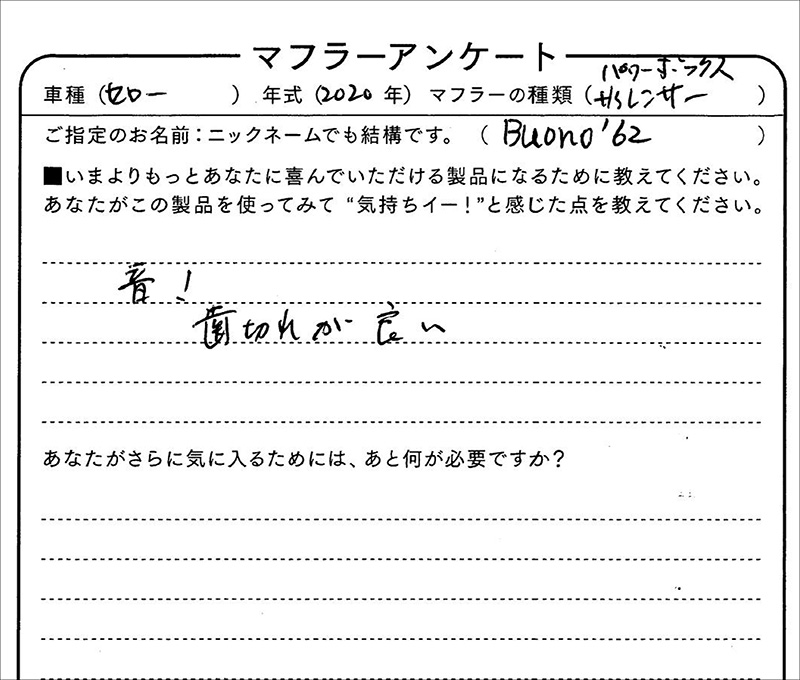 マフラーアンケート
パワーボックス
車種（セロー　　　）年式（2020 年）マフラーの種類（サイレンサー　　）
ご指定のお名前：ニックネームでも結構です。（ Buono'62 　　）
■いまよりもっとあなたに喜んでいただける製品になるために教えてください。
あなたがこの製品を使ってみて“気持ちイー！”と感じた点を教えてください。
音！
歯切れが良い
あなたがさらに気に入るためには、あと何が必要ですか？